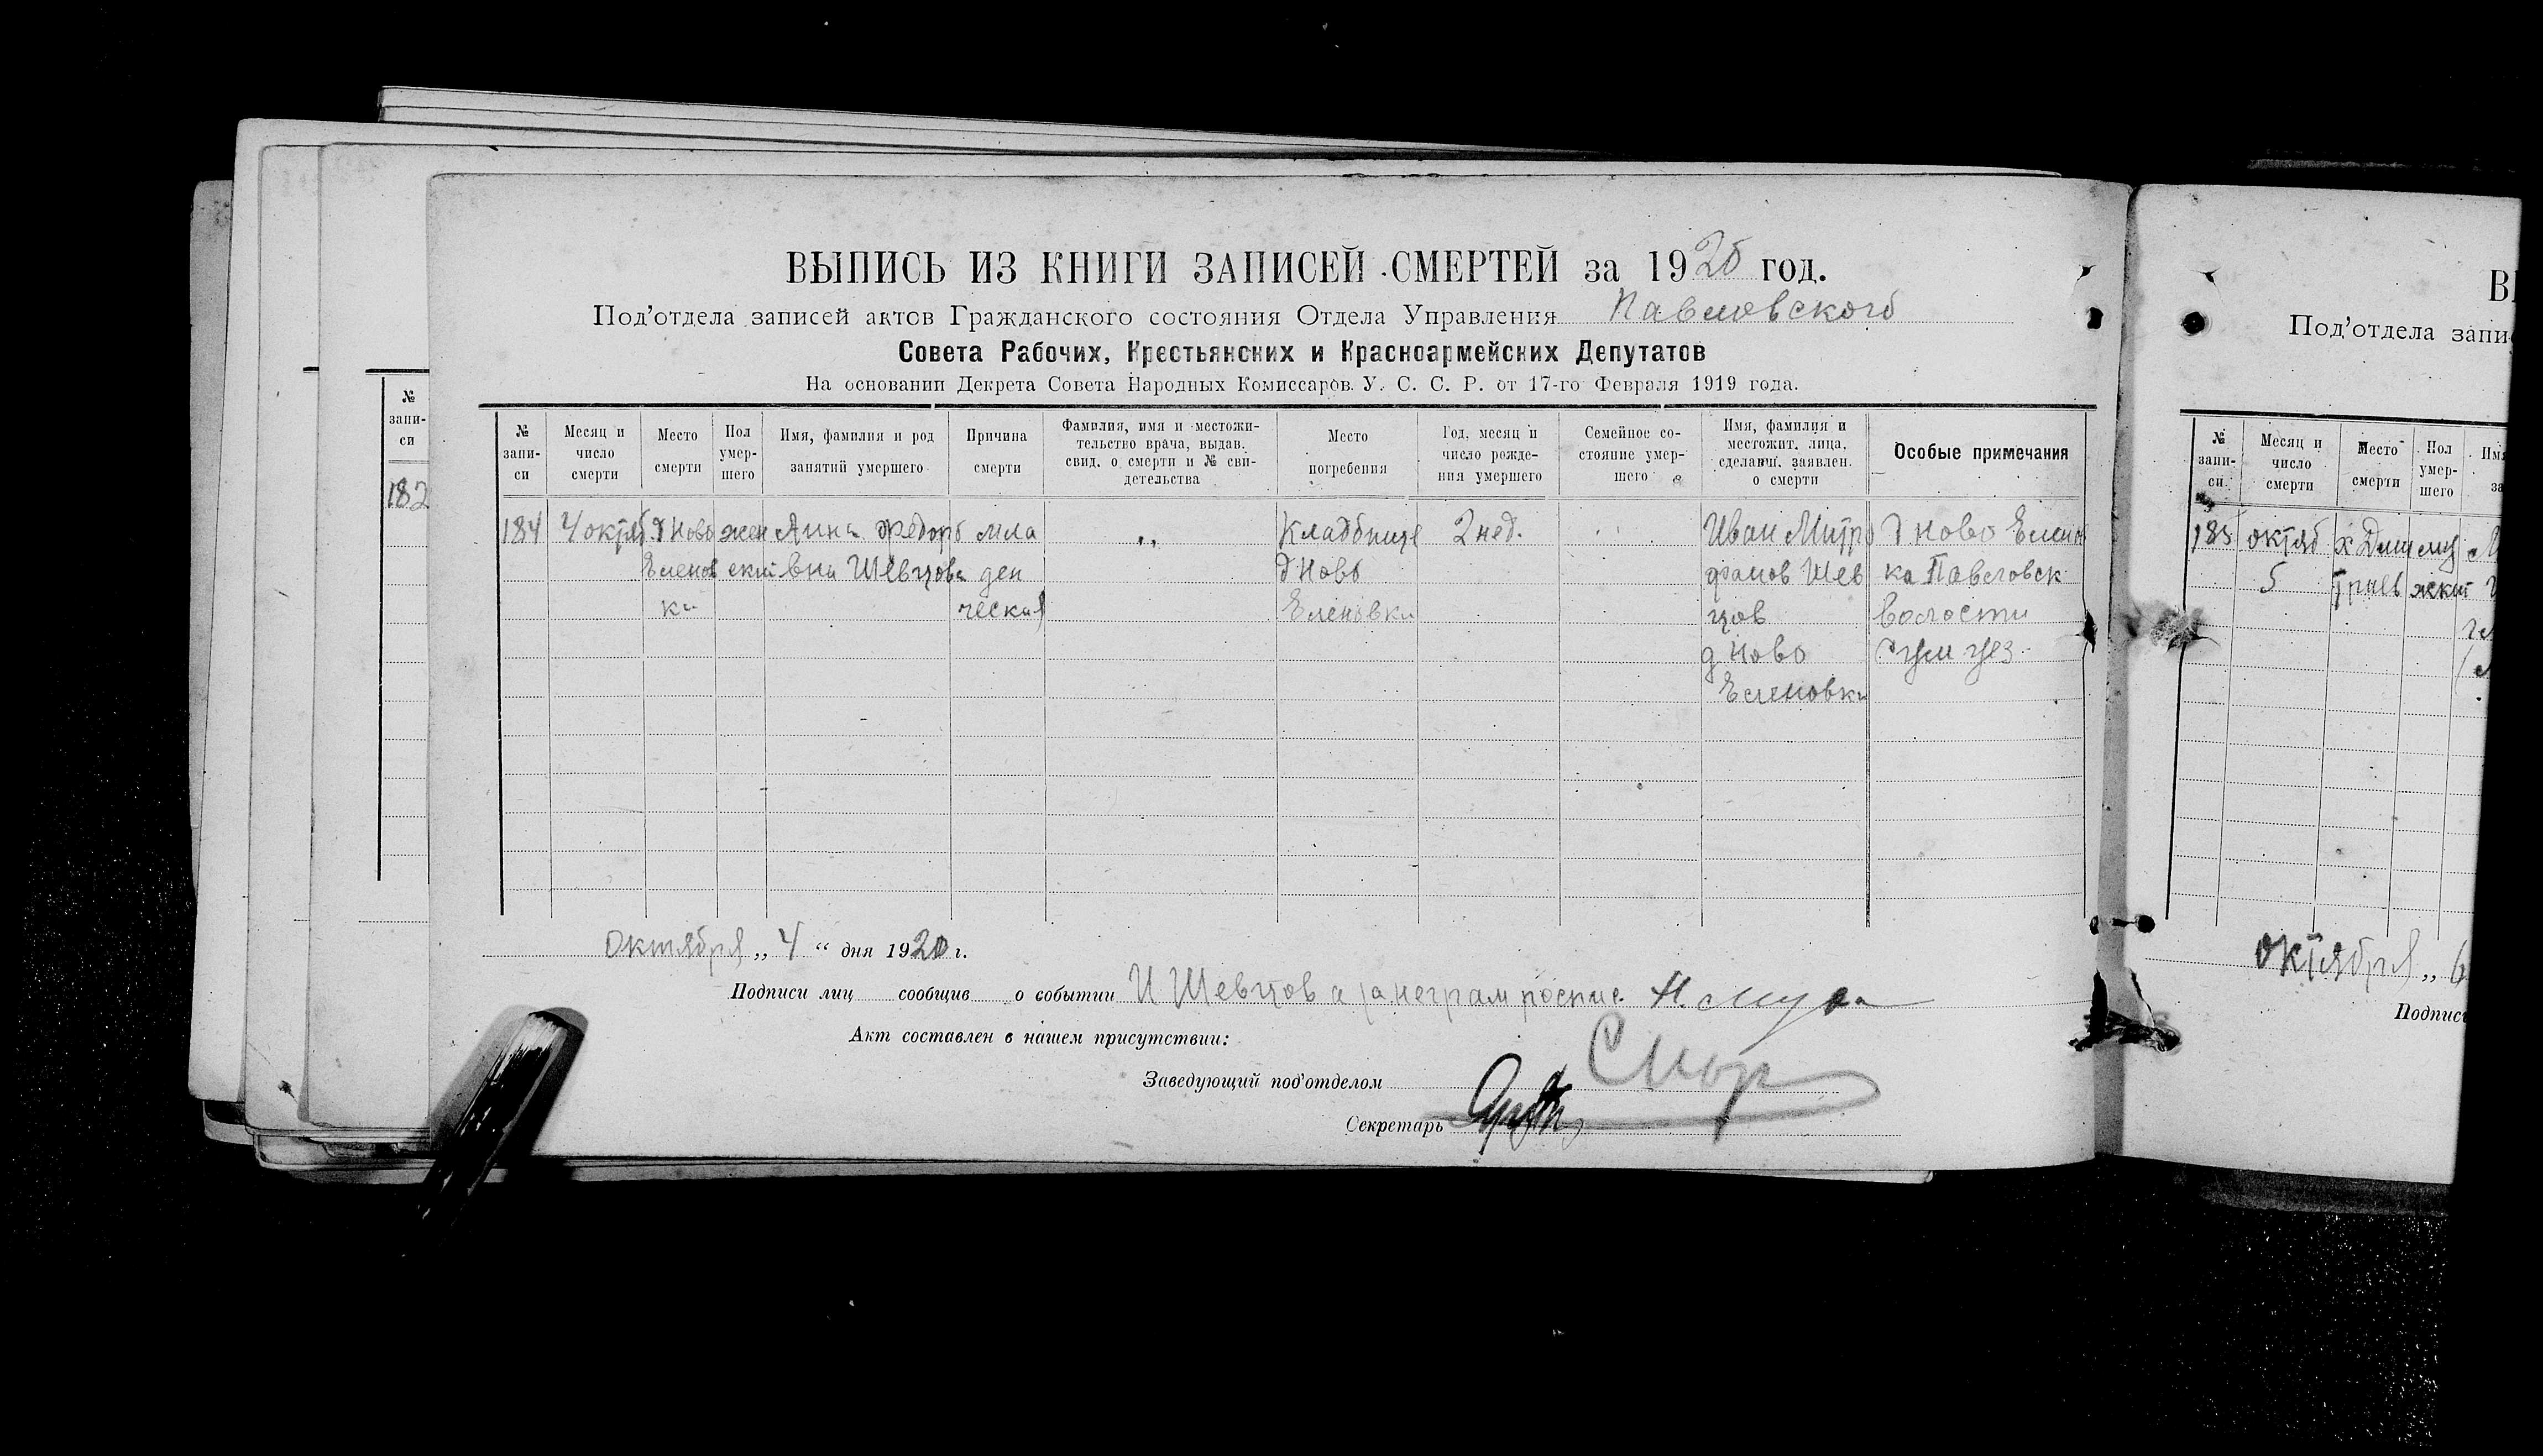 ВЫПИСЬ ИЗ КНИГИ ЗАПИСЕЙ СМЕРТЕЙ за 1920 год.
Под'отдела записей актов Гражданского состояния Отдела Управления Павловского
Совета Рабочих, Крестьянских и Красноармейских Депутатов
На основании Декрета Совета Народных Комиссаров У. С. С. Р. от 17-го Февраля 1919 года.
№ запи- си
Месяц и число смерти
Место смерти
Пол умер- шего
Имя, фамилия и род занятий умершего
Причина смерти
Фамилия, имя и местожи- тельство врача, выдав. свид. о смерти и № сви- детельства
Место погребения
Год, месяц и число рожде- ния умершего
Семейное со- стояние умер- шего
Имя, фамилия и местожит. лица, сделавш. заявлен. о смерти
Особые примечания
184 4 октяб. д Ново жен Анна Федоро мла „ Кладбище 2 нед. Иван Митро д Ново Елено
Еленов ский вна Шевцова ден д Ново фанов Шев ка Павловск
ка ческая Еленовки цов волости
д Ново уез
Еленовки
Октября „ 4 “ дня 1920 г.
Подписи лиц сообщив о событии И Шевцов а за неграм роспис.
Акт составлен в нашем присутствии:
Заведующий под'отделом
Секретарь
№ запи- си
182
В
Под'отдела запи
№ запи- си
Месяц и число смерти
Место смерти
Пол умер- шего
185 октяб х
5
октября „ 6
Подпис